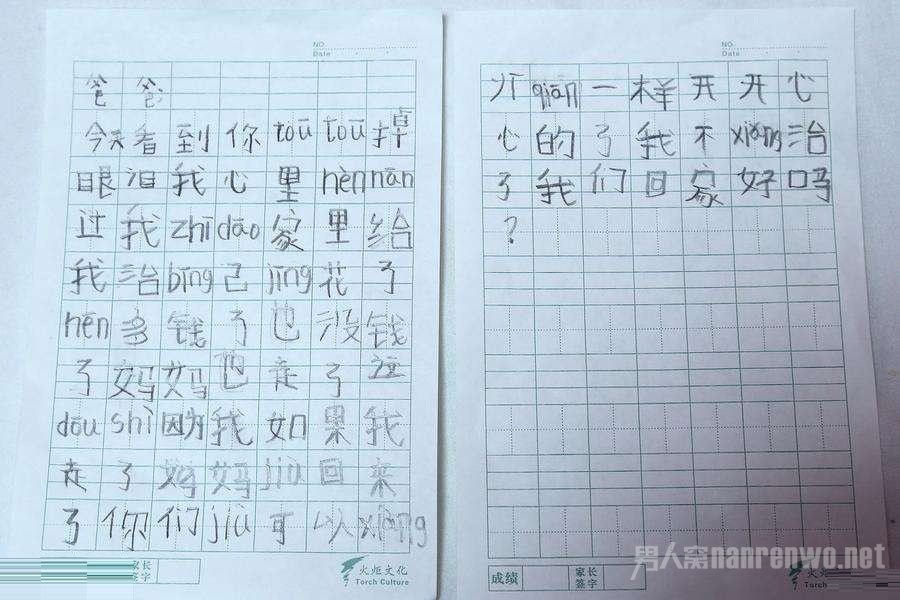 NO.
Date
爸爸
今天看到你tōū tōū掉
眼泪我心里hèn nān
过我zhī dāo家里给
我治bīng己jīng花了
hēn多钱了也没钱
了妈妈也走了这
dōu shì因为我如果我
走了妈妈jiù回来
了你们jiù可以xiàng
家长
签字
火炬文化
Torch Culture
NO.
Date
qiān一样开开心
心的了我不xiǎng治
了我们回家好吗
?
成绩
家长
签字
火炬
Torch
男人窝nanrenwo.net